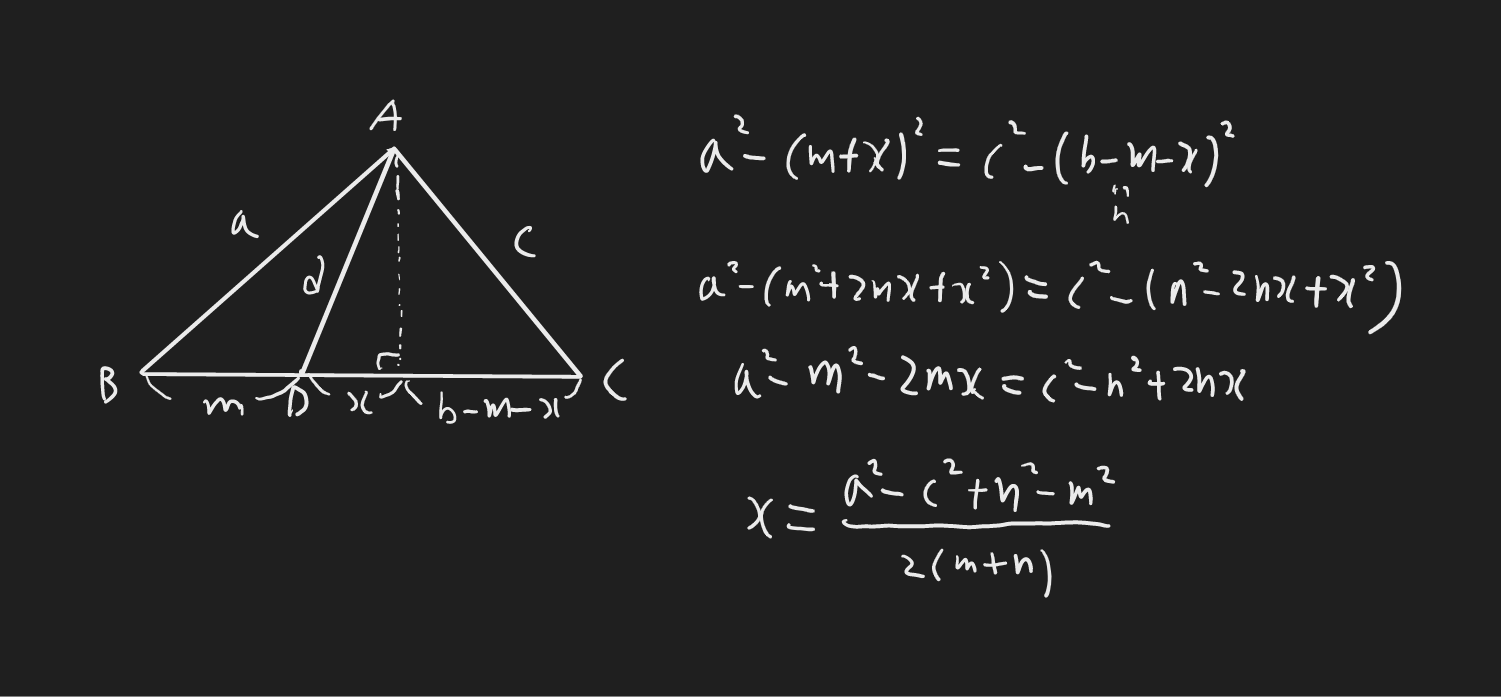 A
a
d
C
B
m
D
x
b-m-x
C
a² - (m+x)² = c² - (b-m-x)²
"
n
a² - (m² + 2mx + x²) = c² - (n² - 2nx + x²)
a² - m² - 2mx = c² - n² + 2nx
x = (a² - c² + n² - m²) / 2(m+n)